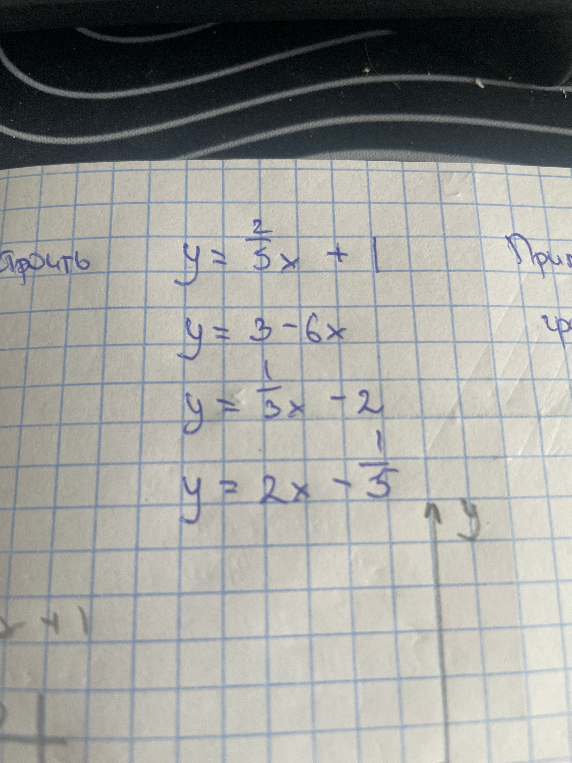 строить y = 2/5 x + 1 При
y = 3 - 6x
y = 1/3 x - 2
y = 2x - 1/5
y
x + 1